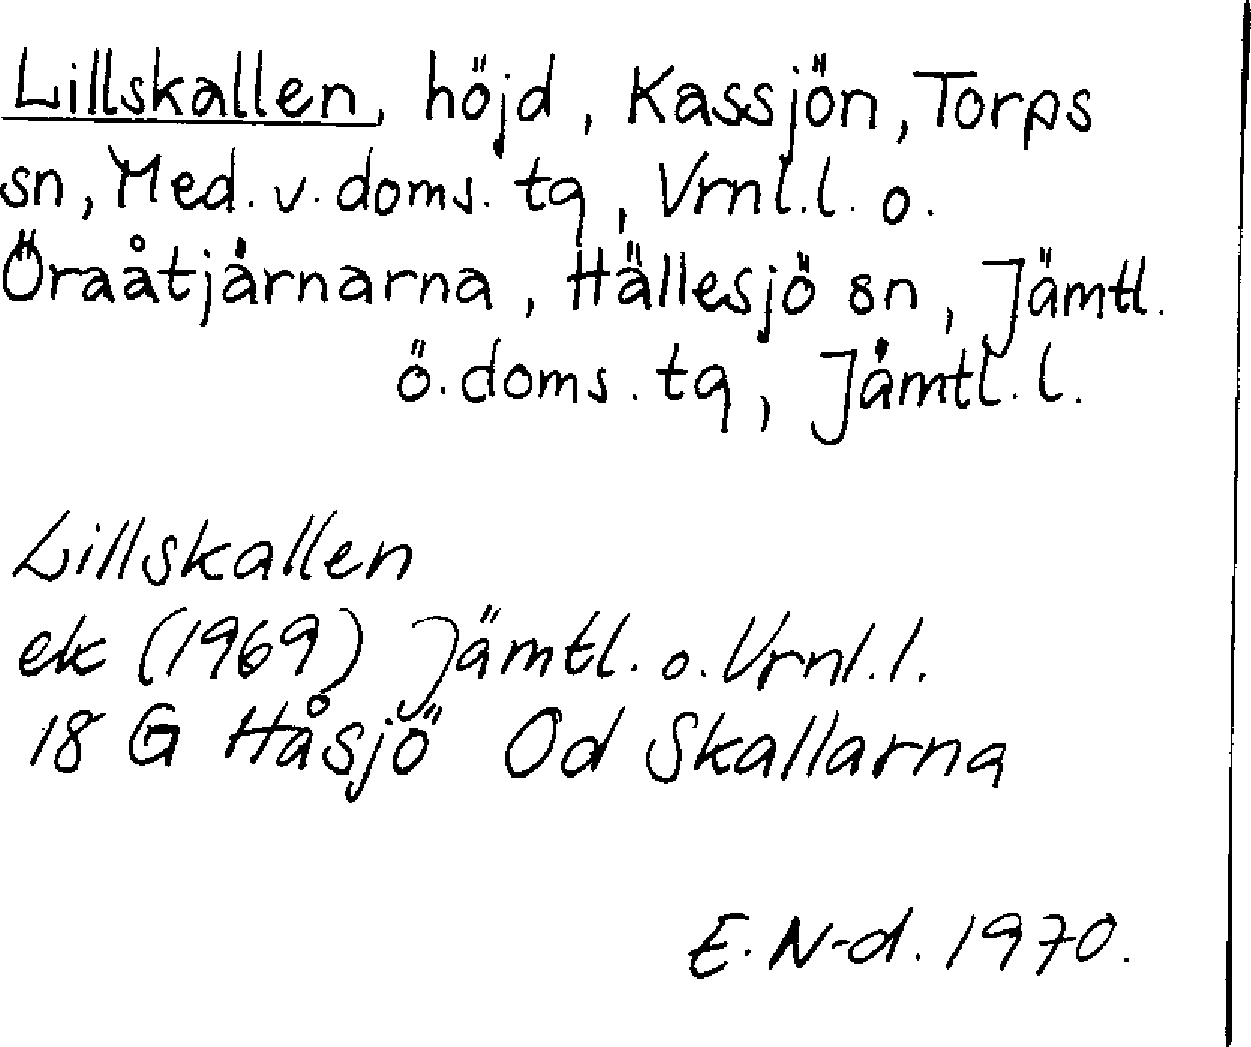 Lillskallen, höjd, Kassjön, Torps
sn, Med. v. doms. tg, Vrnl.l. o.
Öraåtjärnarna, Hällesjö sn, Jämtl.
ö. doms. tg, Jämtl. l.
Lillskallen
ek (1969) Jämtl. o. Vrnl. l.
18 G Håsjö Od Skallarna
E. N-d. 1970.